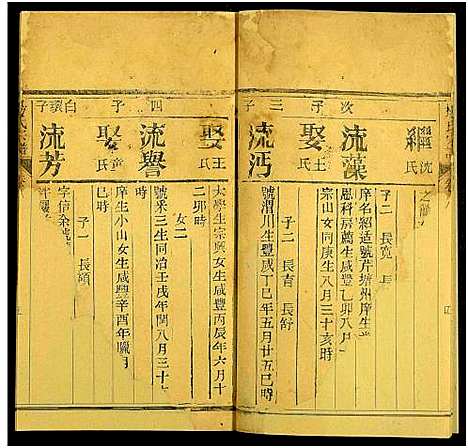 繼沈氏
子二 長寬
次子
流藻
庠名紹适號芹塘州庠生
恩科房薦生咸豐乙卯八月
娶王氏
宗山女同庚生八月三十亥時
子二 長青 長舒
三子
流沔
號渭川生豐咸丁巳年五月廿五巳時
娶王氏
太學生宗興女生咸豐丙辰年六月十
二卯時
女二
四子
流譽
號采三生同治壬戌年閏八月三十
時
娶章氏
庠生小山女生咸豐辛酉年臘月
巳時
子一 長頌
白襄子
流芳
字信